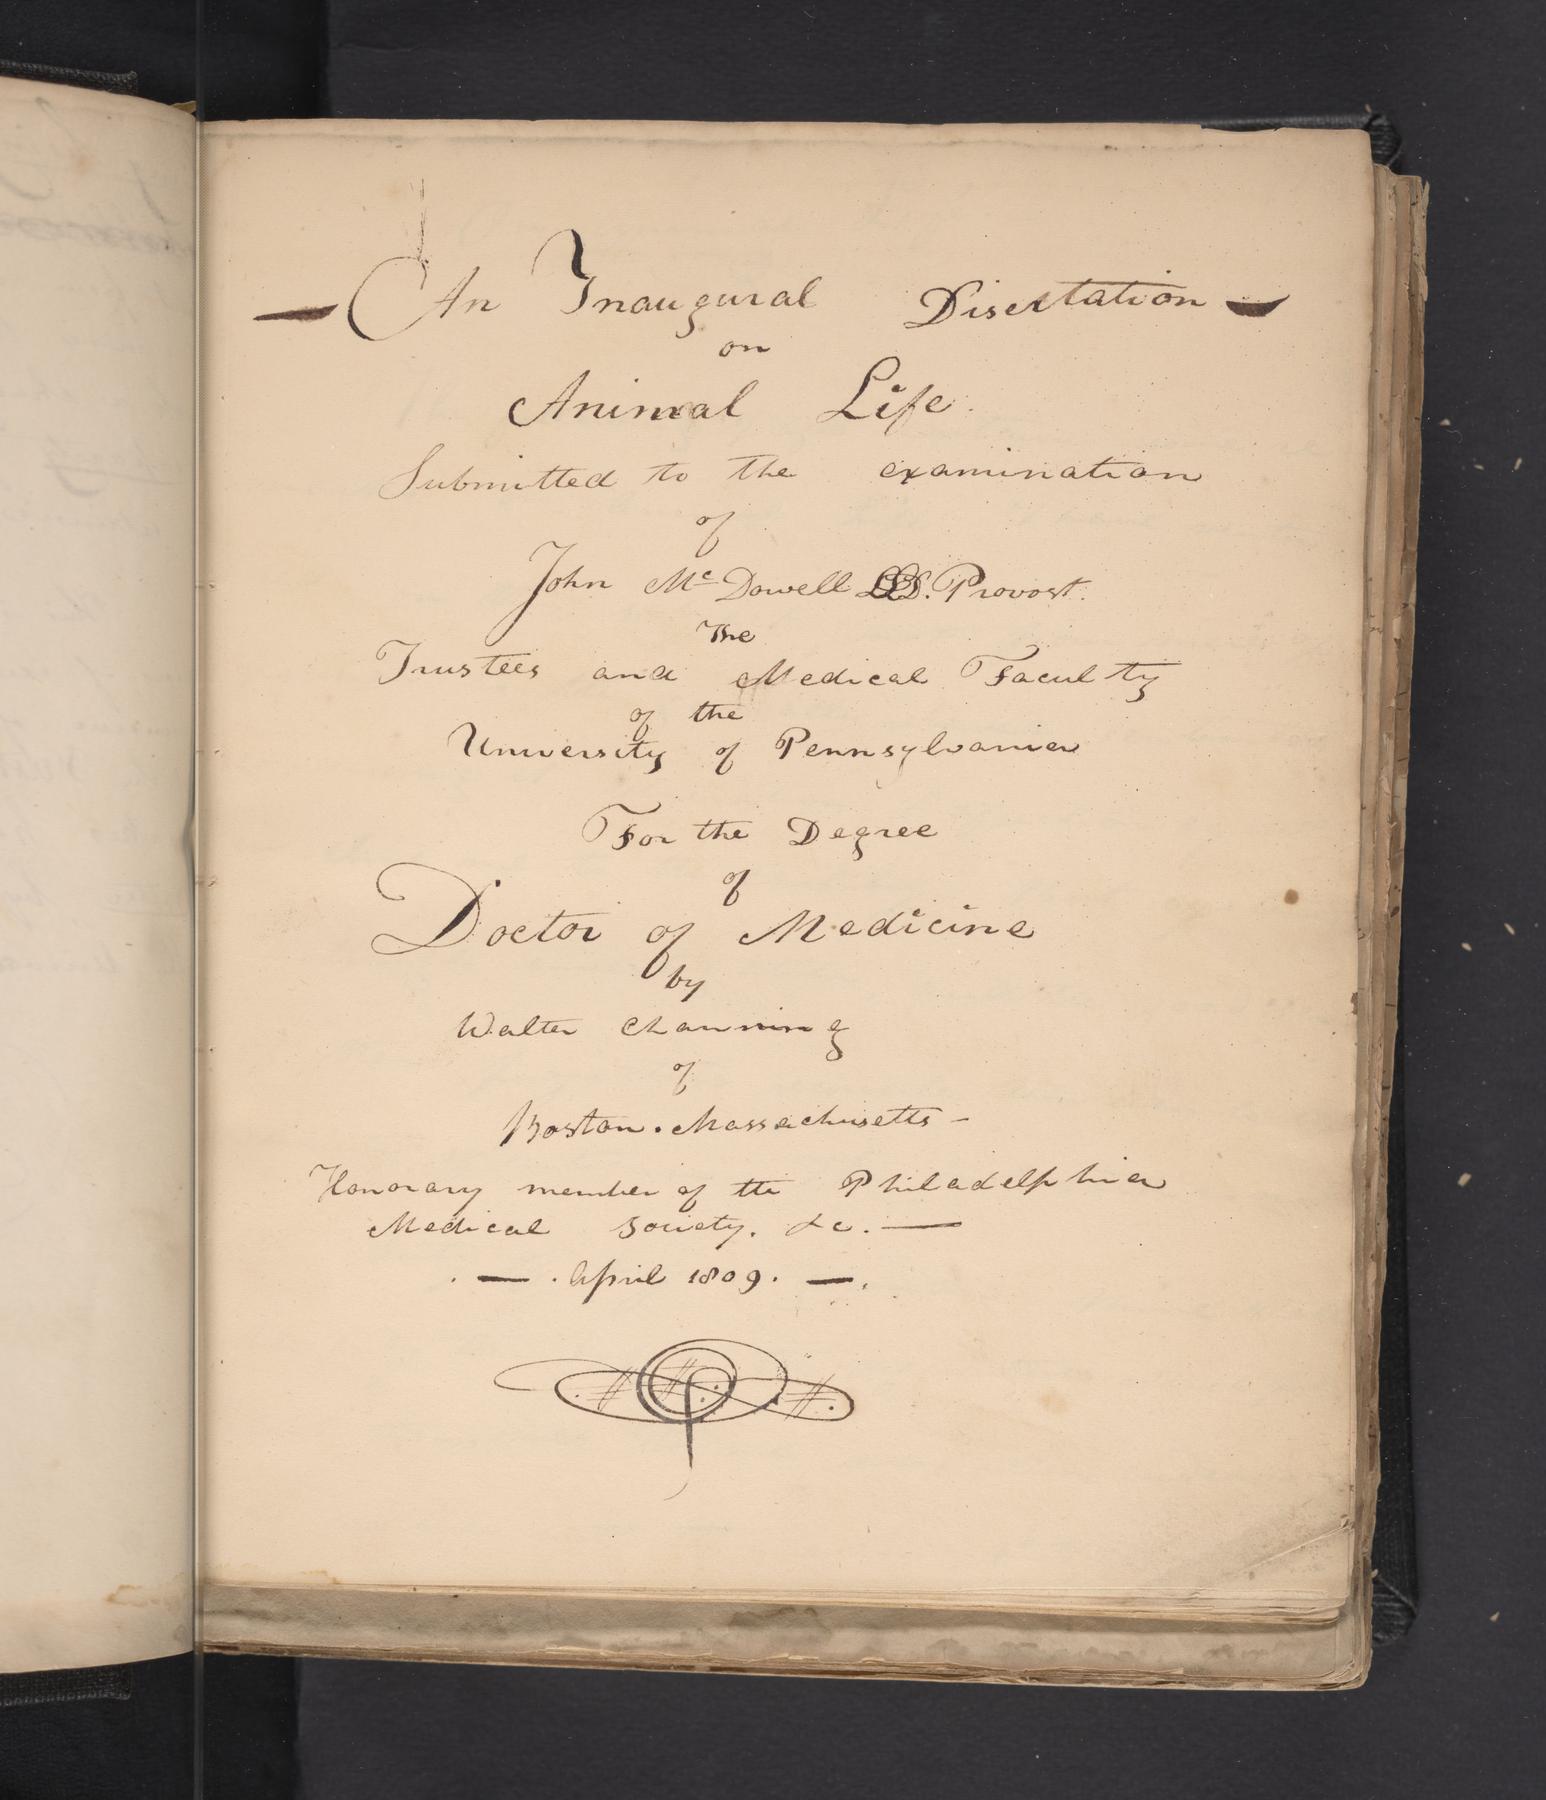 — An Inaugural Disertation —
on
Animal Life.
Submitted to the examination
of
John Mc Dowell LLD. Provost.
The
Trustees and Medical Faculty
of the
University of Pennsylvania
For the Degree
of
Doctor of Medicine
by
Walter Channing
of
Boston. Massachusetts -
Honorary member of the Philadelphia
Medical Society. &c. —
. — . April 1809. — .